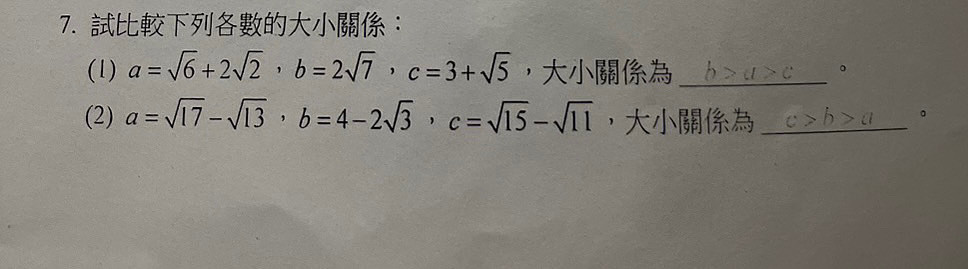 7. 試比較下列各數的大小關係：
(1) a=√6+2√2，b=2√7，c=3+√5，大小關係為 b>a>c 。
(2) a=√17-√13，b=4-2√3，c=√15-√11，大小關係為 c>b>a 。